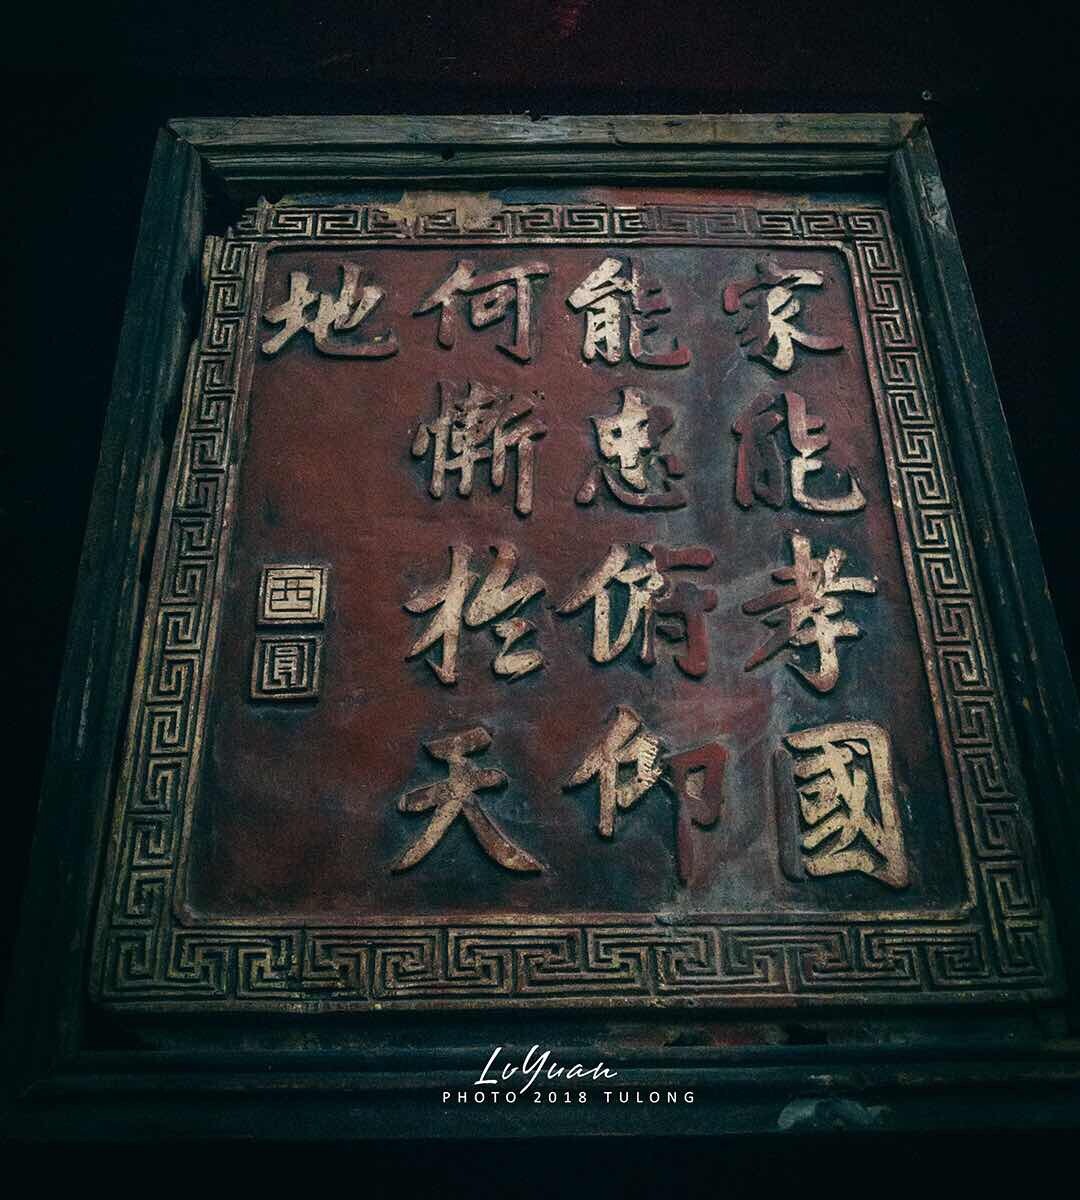 家能孝國
能忠俯仰
何慚於天
地
西
圃
LvYuan
PHOTO 2018 TULONG